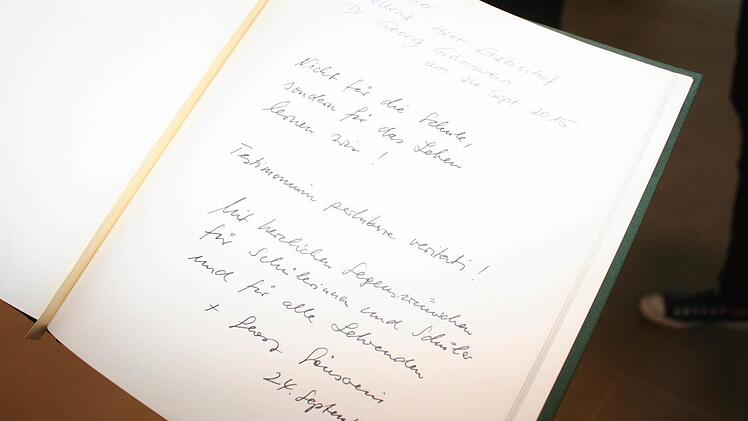 Herr Erzbischof
Dr. Georg Gänswein
am 24 Sept 2015
Nicht für die Schule,
sondern für das Leben
lernen wir!
Testimonium perhibere veritati!
Mit herzlichen Segenswünschen
für Schülerinnen und Schüler
und für alle Lehrenden
+ Georg Gänswein
24. Septem